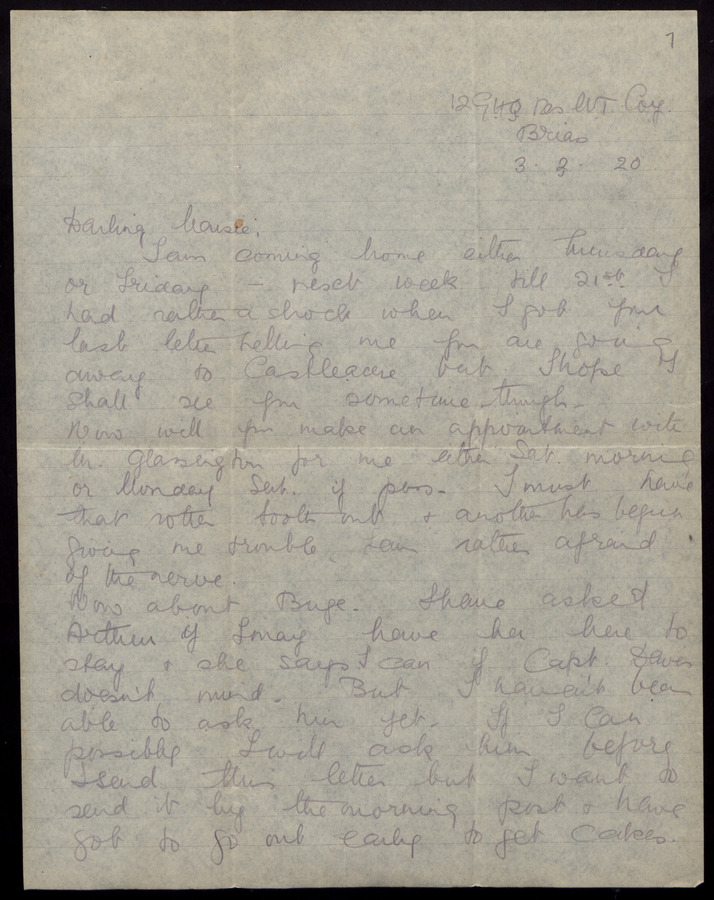 7
12 GHQ Res M.T. Coy.
Brias
3. 3. 20
Darling Maisie,
I am coming home either Thursday
or Friday – next week till 21st. I
had rather a shock when I got your
last letter telling me you are going
away to Castleacre but I hope I
shall see you sometime though.
Now will you make an appointment with
Mr. Glassington for me either Sat. morning
or Monday Sat. if poss. I must have
that rotten tooth out & another has begun
giving me trouble, I am rather afraid
of the nerve.
Now about Buge. I have asked
if I may have her here to
stay & she says I can if Capt.
doesn't mind. But I haven't been
able to ask him yet. If I can
possibly I will ask him before
I send this letter but I want to
send it by the morning post & have
got to go out early to get cakes.